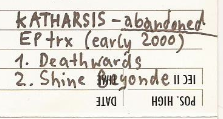 KATHARSIS - abandoned
EP trx (early 2000)
1. Deathwards
2. Shine Beyonde
POS. HIGH
IEC II
DATE